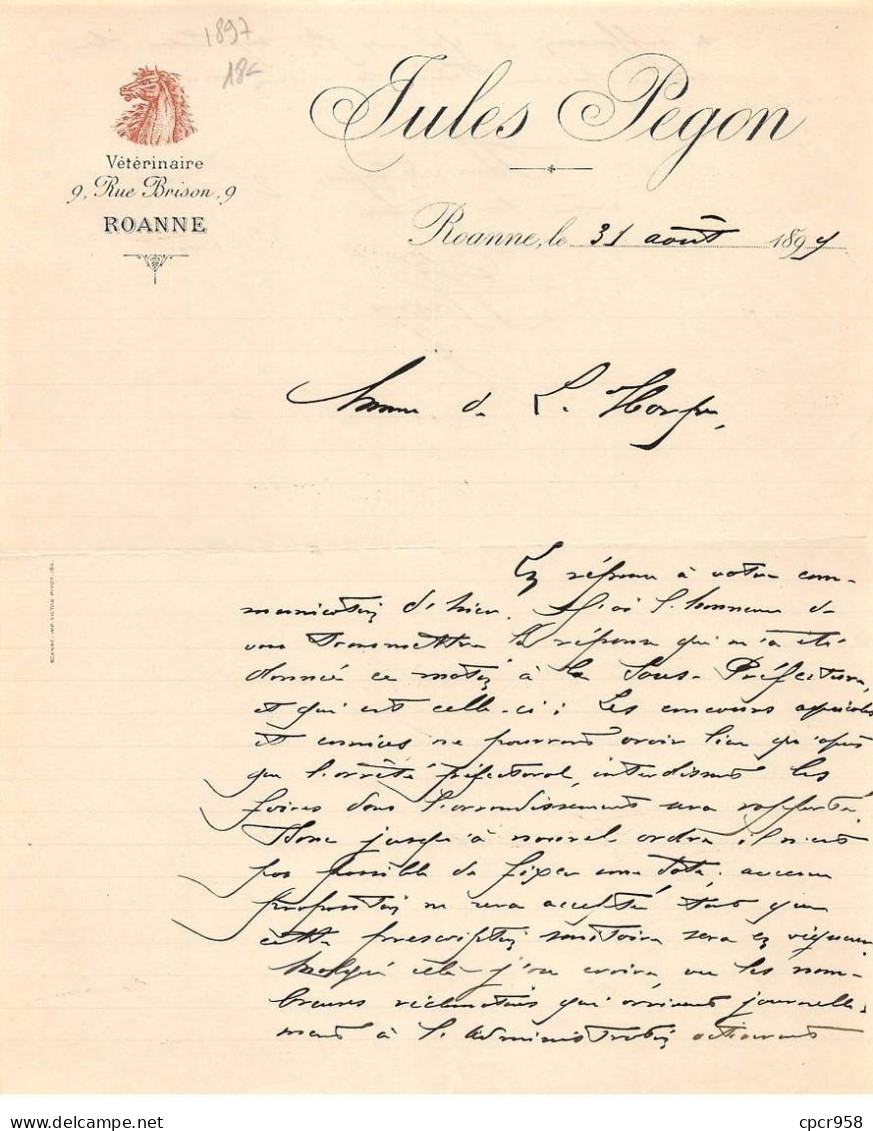 1897
18€
Jules Pegon
Vétérinaire
9, Rue Brison, 9
ROANNE
Roanne, le 31 août 1897
de L.
En réponse à votre com-
munication d'hier. J'ai l'honneur de
vous transmettre la réponse qui m'a été
donnée ce matin à la Sous-Préfecture,
et qui est celle-ci: Les concours agricoles
et comices ne pourront avoir lieu qu'après
que l'arrêté préfectoral, interdisant les
foires dans l'arrondissement sera rapporté.
Donc jusqu'à nouvel ordre il n'est
pas possible de fixer une date; aucune
proposition ne sera acceptée tant que
cette prescription sanitaire sera en vigueur
Malgré cela j'ose croire, vu les nom-
breuses réclamations qui arrivent journelle-
ment à l'administration
cpcr958